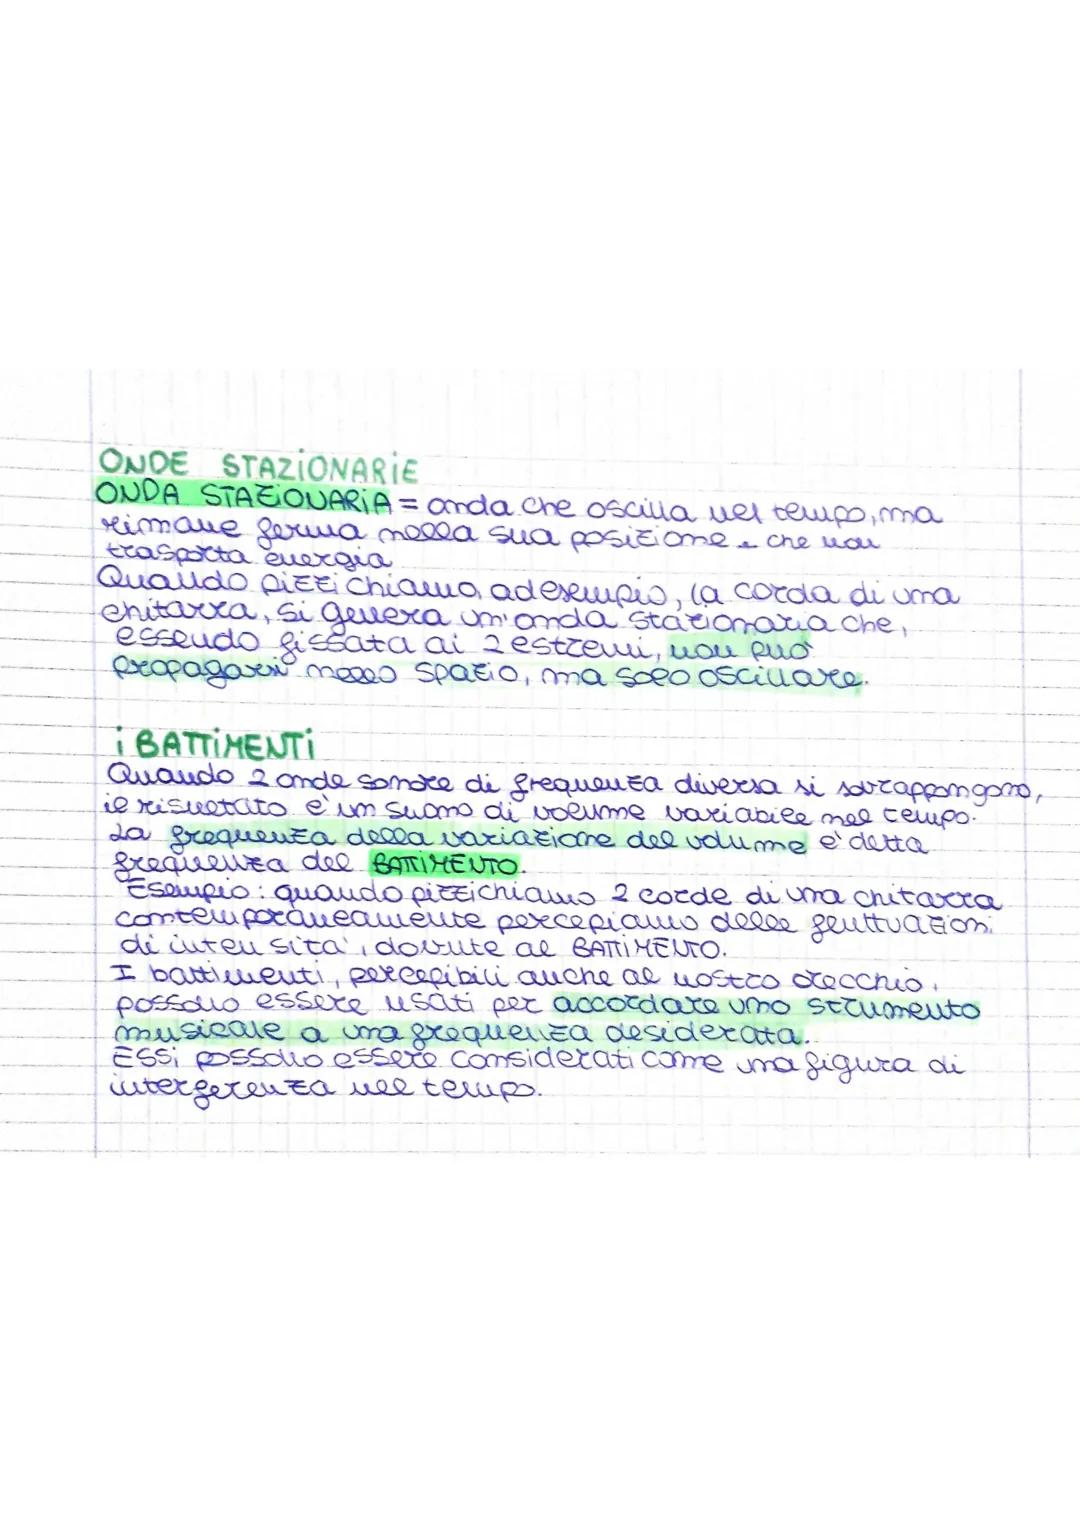 ONDE STAZIONARIE
ONDA STAZIONARIA = onda che oscilla nel tempo, ma
rimane ferma nella sua posizione e che non
trasporta energia
Quando pizzichiamo, ad esempio, la corda di una
chitarra, si genera un'onda stazionaria che,
essendo fissata ai 2 estremi, non può
propagarsi nello spazio, ma solo oscillare.
i BATTIMENTI
Quando 2 onde sonore di frequenza diversa si sovrappongono,
il risultato è un suono di volume variabile nel tempo.
La frequenza della variazione del volume è detta
frequenza del BATTIMENTO.
Esempio: quando pizzichiamo 2 corde di una chitarra
contemporaneamente percepiamo delle fluttuazioni
di intensità, dovute al BATTIMENTO.
I battimenti, percepibili anche al nostro orecchio,
possono essere usati per accordare uno strumento
musicale a una frequenza desiderata.
Essi possono essere considerati come una figura di
interferenza nel tempo.